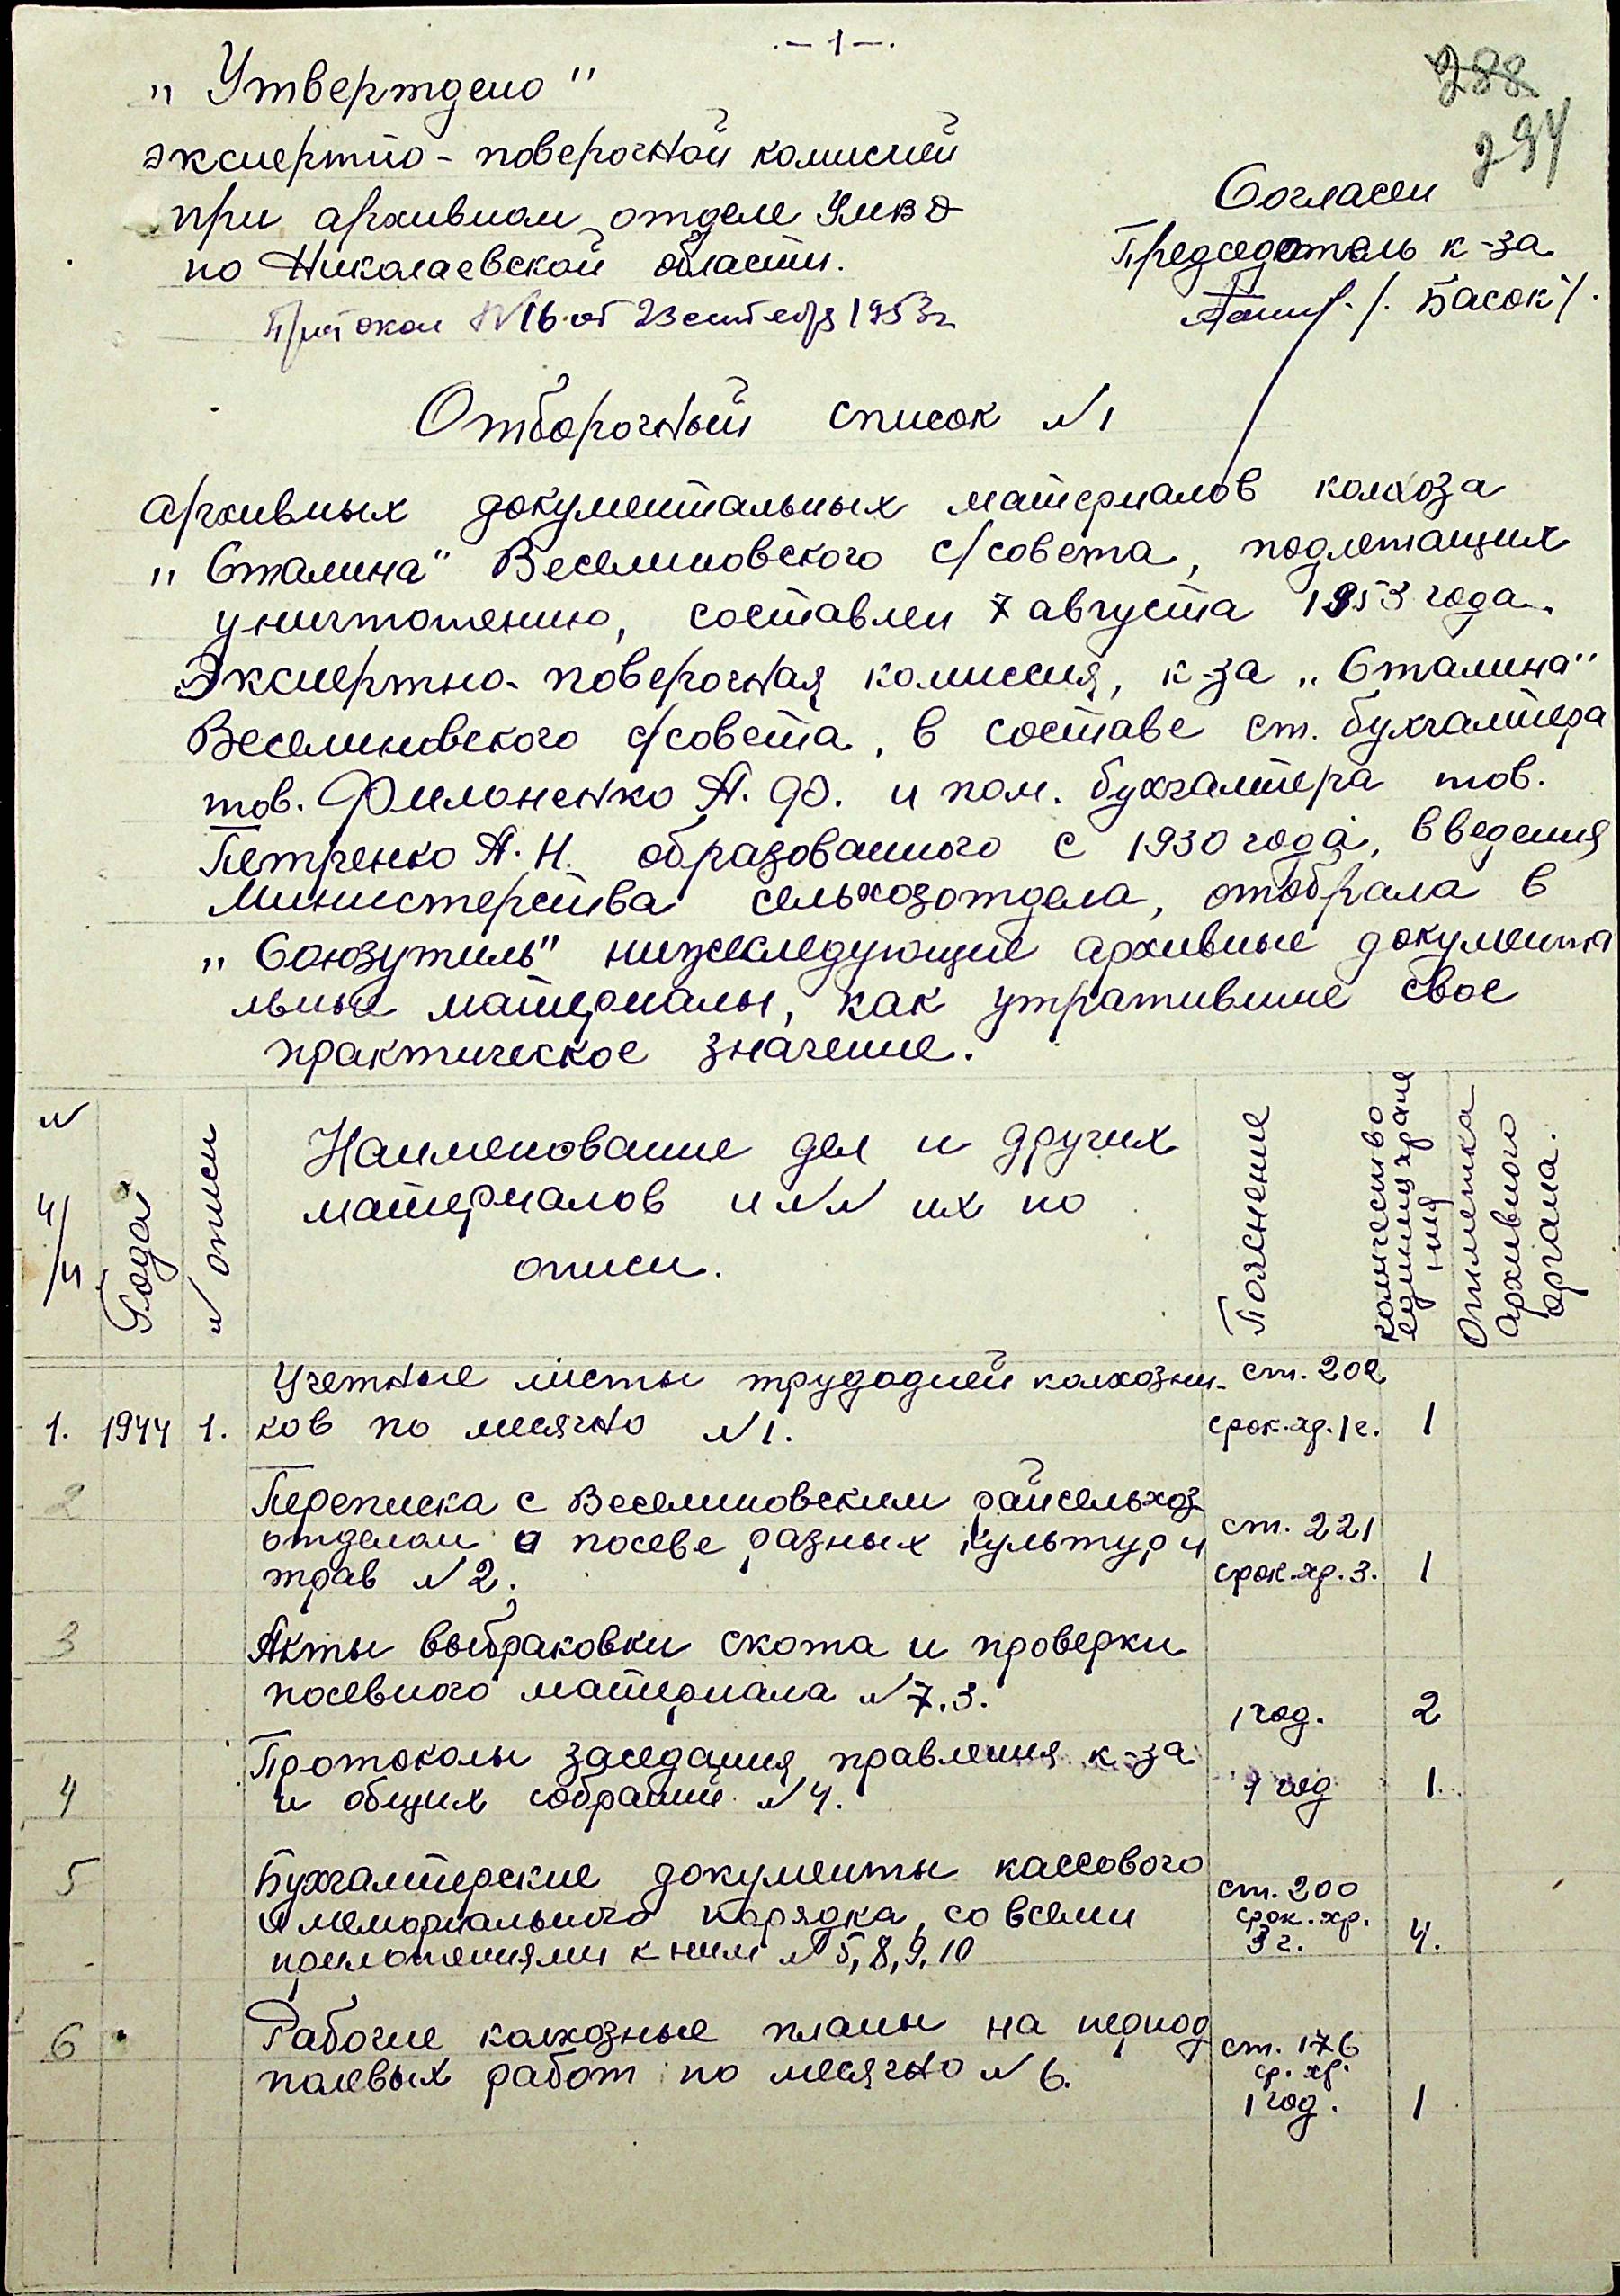 - 1 -
288
294
"Утверждено"
экспертно-поверочной комиссией
при архивном отделе УМВД
по Николаевской области.
Протокол №16 от 23 сентября 1953г
Согласен
Председатель к-за
/Басок/.
Отборочный список №1
архивных документальных материалов колхоза
"Сталина" Веселиновского с/совета, подлежащих
уничтожению, составлен 7 августа 1953 года.
Экспертно-поверочная комиссия, к-за "Сталина"
Веселиновского с/совета, в составе ст. бухгалтера
тов. Филоненко А. Ф. и пом. бухгалтера тов.
Петренко А. Н. образованного с 1930 года, введения
Министерства сельхозотдела, отобрала в
"Союзутиль" нижеследующие архивные документа
льные материалы, как утратившие свое
практическое значение.
№ п/п
Года
№ описи
Наименование дел и других
материалов и №№ их по
описи.
Пояснение
количество
единиц хране
ния
Отметка
архивного
органа.
Учетные листы трудодней колхозни- ст. 202
1. 1944 1. ков по месячно №1. срок.хр.1г. 1
2 Переписка с Веселиновским райсельхоз
отделом о посеве разных культур и ст. 221
трав №2. срок.хр.3. 1
3 Акты выбраковки скота и проверки
посевного материала №7.3. 1 год. 2
Протоколы заседания правления к-за
4 и общих собраний №4. 1 год 1.
5 Бухгалтерские документы кассового ст. 200
и мемориального порядка, со всеми срок.хр.
приложениями к ним №5,8,9,10 3г. 4.
6 Рабочие колхозные планы на период ст. 176
полевых работ по месячно №6. ср. хр.
1 год. 1